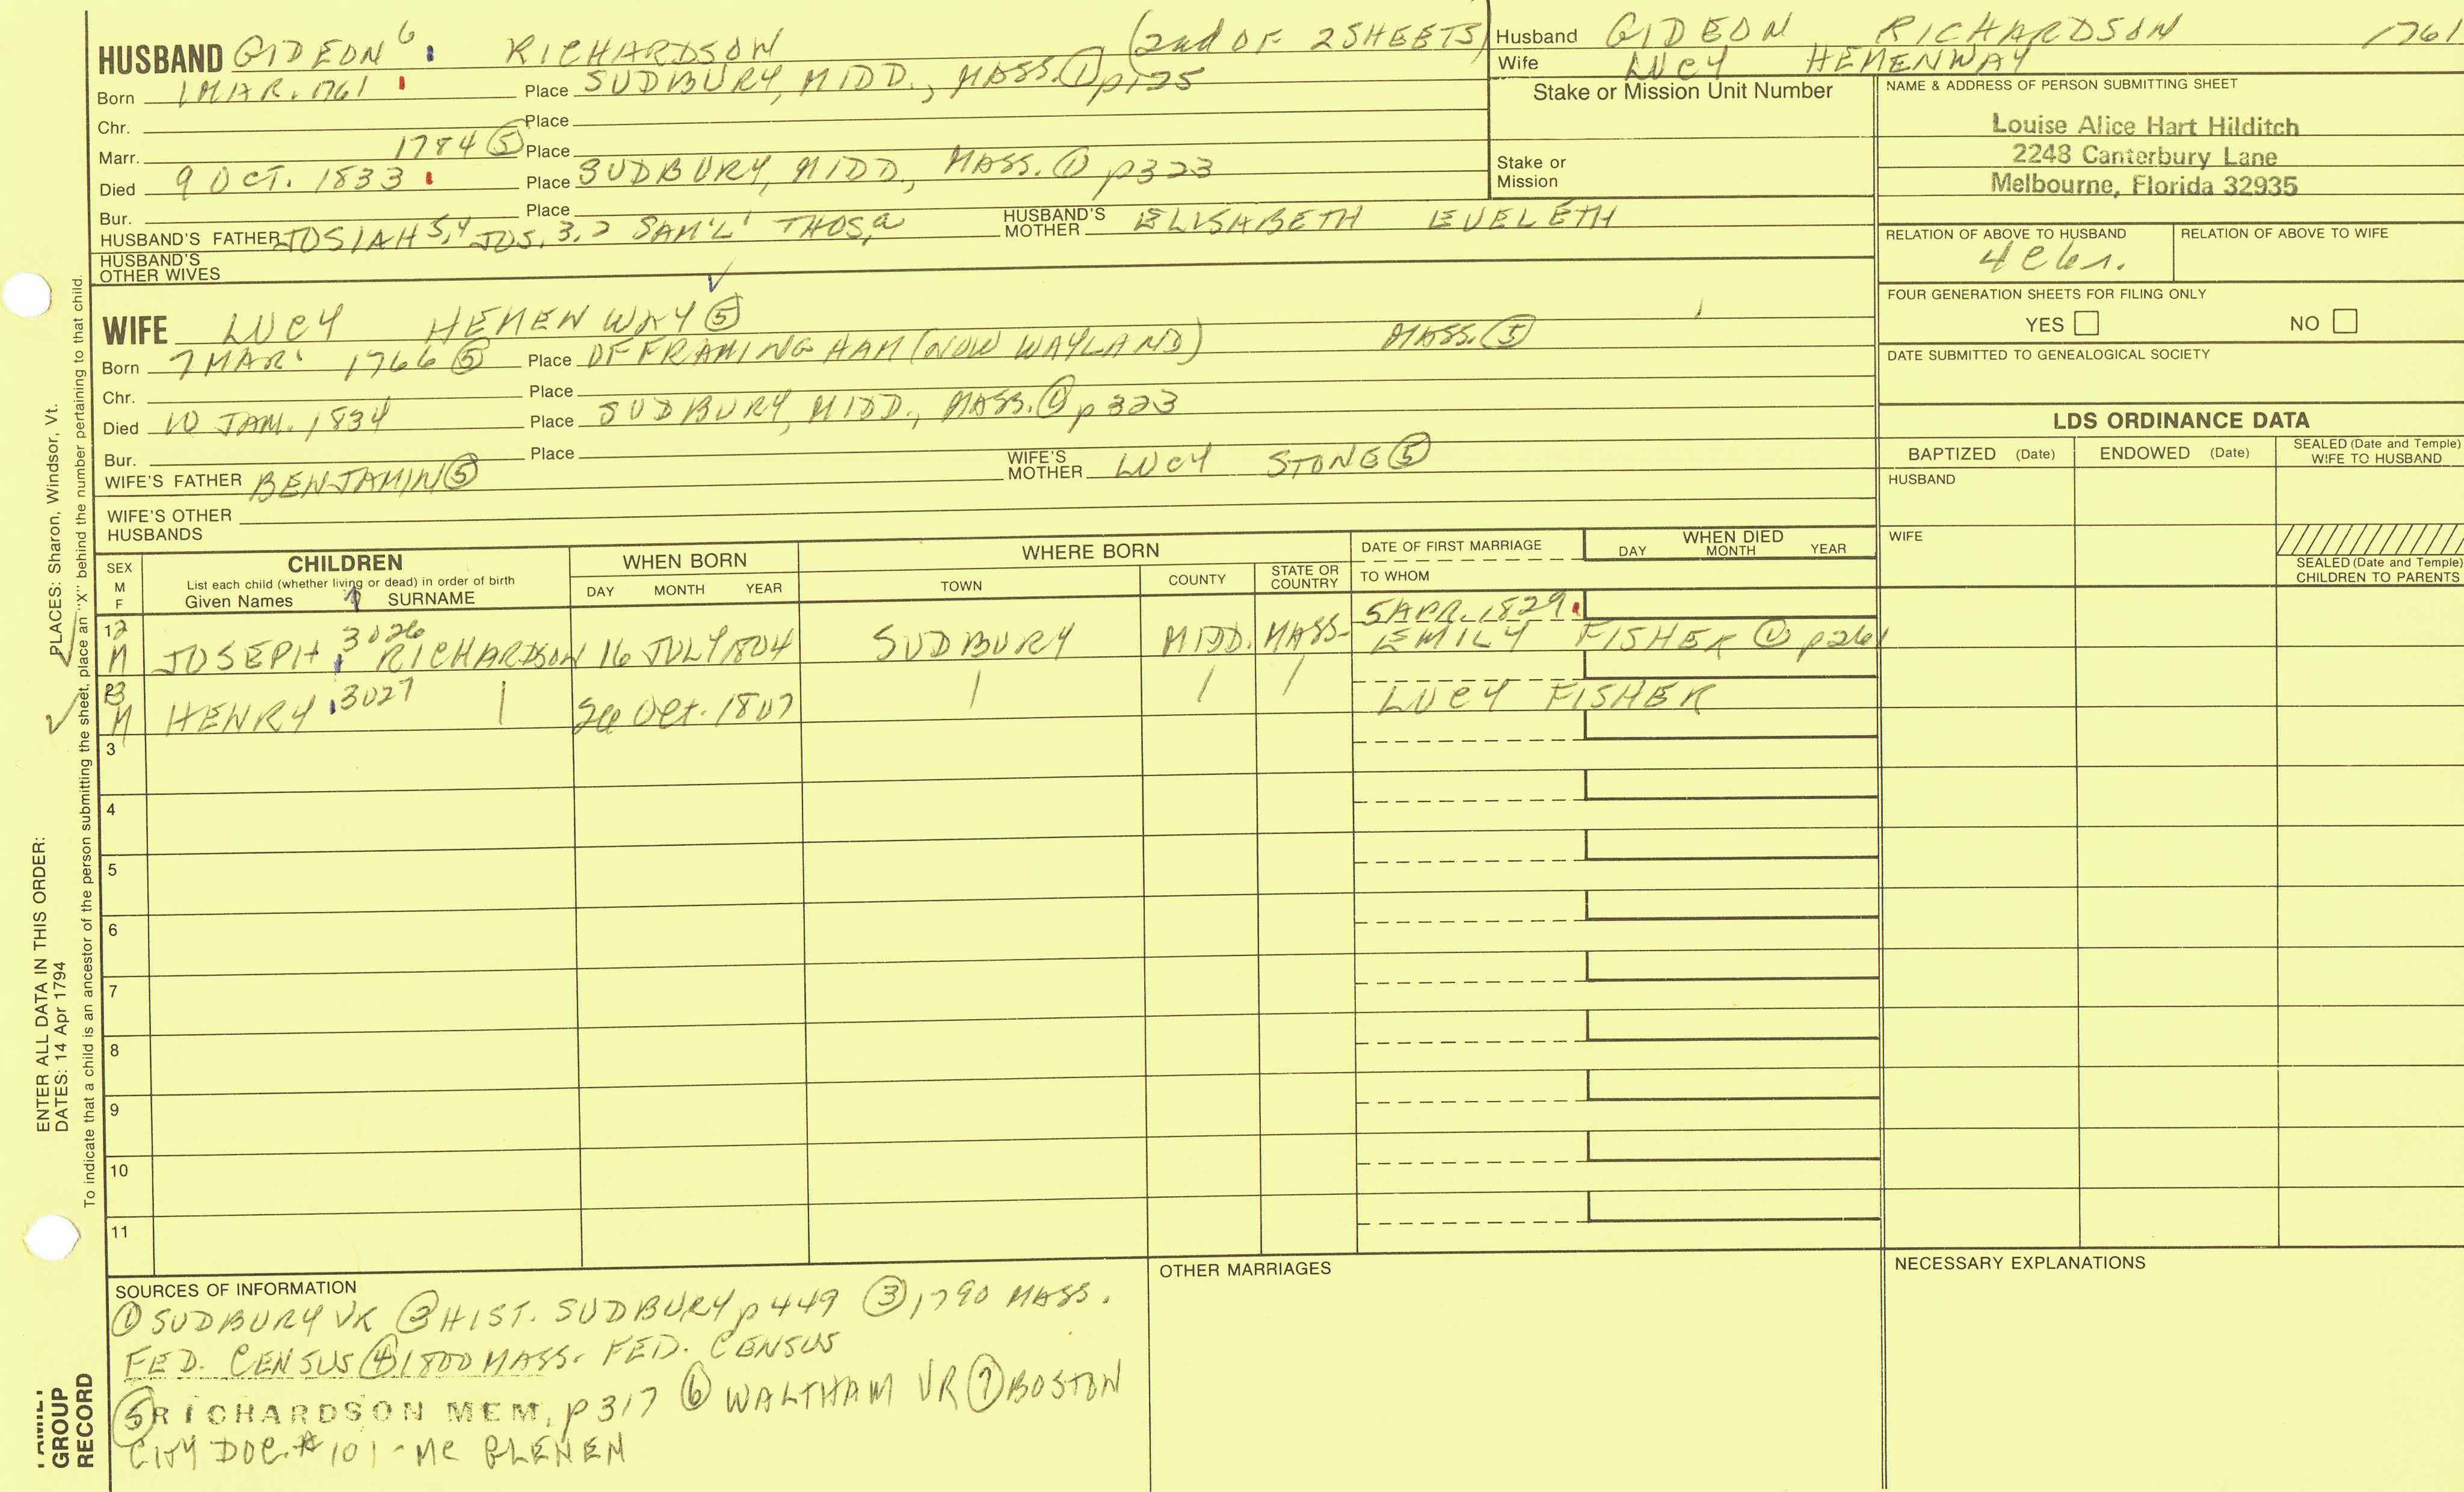 HUSBAND GIDEON 6 : RICHARDSON (2nd OF 2 SHEETS)
Born 1 MAR. 1761 Place SUDBURY, MIDD., MASS. ① p125
Chr. Place
Marr. 1784 ⑤ Place
Died 9 OCT. 1833 Place SUDBURY, MIDD., MASS. ① p323
Bur. Place
HUSBAND'S FATHER JOSIAH 5,4 JOS. 3,2 SAM'L' THOS,a HUSBAND'S MOTHER ELISABETH EVELETH
HUSBAND'S OTHER WIVES
WIFE LUCY HEMENWAY ⑤
Born 7 MAR. 1766 ⑤ Place OF FRAMINGHAM (NOW WAYLAND) MASS. ⑤
Chr. Place
Died 10 JAN. 1834 Place SUDBURY, MIDD., MASS. ① p323
Bur. Place
WIFE'S FATHER BENJAMIN ⑤ WIFE'S MOTHER LUCY STONE ⑤
WIFE'S OTHER HUSBANDS
Husband GIDEON RICHARDSON 1761
Wife LUCY HEMENWAY
Stake or Mission Unit Number
Stake or Mission
NAME & ADDRESS OF PERSON SUBMITTING SHEET
Louise Alice Hart Hilditch
2248 Canterbury Lane
Melbourne, Florida 32935
RELATION OF ABOVE TO HUSBAND RELATION OF ABOVE TO WIFE
FOUR GENERATION SHEETS FOR FILING ONLY
YES NO
DATE SUBMITTED TO GENEALOGICAL SOCIETY
LDS ORDINANCE DATA
BAPTIZED (Date) ENDOWED (Date) SEALED (Date and Temple) WIFE TO HUSBAND
HUSBAND
WIFE
SEALED (Date and Temple) CHILDREN TO PARENTS
SEX M F CHILDREN WHEN BORN WHERE BORN DATE OF FIRST MARRIAGE WHEN DIED
List each child (whether living or dead) in order of birth
Given Names SURNAME DAY MONTH YEAR TOWN COUNTY STATE OR COUNTRY TO WHOM DAY MONTH YEAR
5 APR. 1829
12 M JOSEPH 3026 RICHARDSON 16 JULY 1804 SUDBURY MIDD. MASS. EMILY FISHER ① p261
13 M HENRY 3027 Oct. 1807 LUCY FISHER
3
4
5
6
7
8
9
10
11
SOURCES OF INFORMATION
① SUDBURY VR ② HIST. SUDBURY p449 ③ 1790 MASS.
FED. CENSUS ④ 1800 MASS. FED. CENSUS
⑤ RICHARDSON MEM, p317 ⑥ WALTHAM VR ⑦ BOSTON
CITY DOC. # 101 - Mc
OTHER MARRIAGES
NECESSARY EXPLANATIONS
ENTER ALL DATA IN THIS ORDER:
DATES: 14 Apr 1794
PLACES: Sharon, Windsor, Vt.
To indicate that a child is an ancestor of the person submitting the sheet, place an "X" behind the number pertaining to that child.
FAMILY
GROUP
RECORD